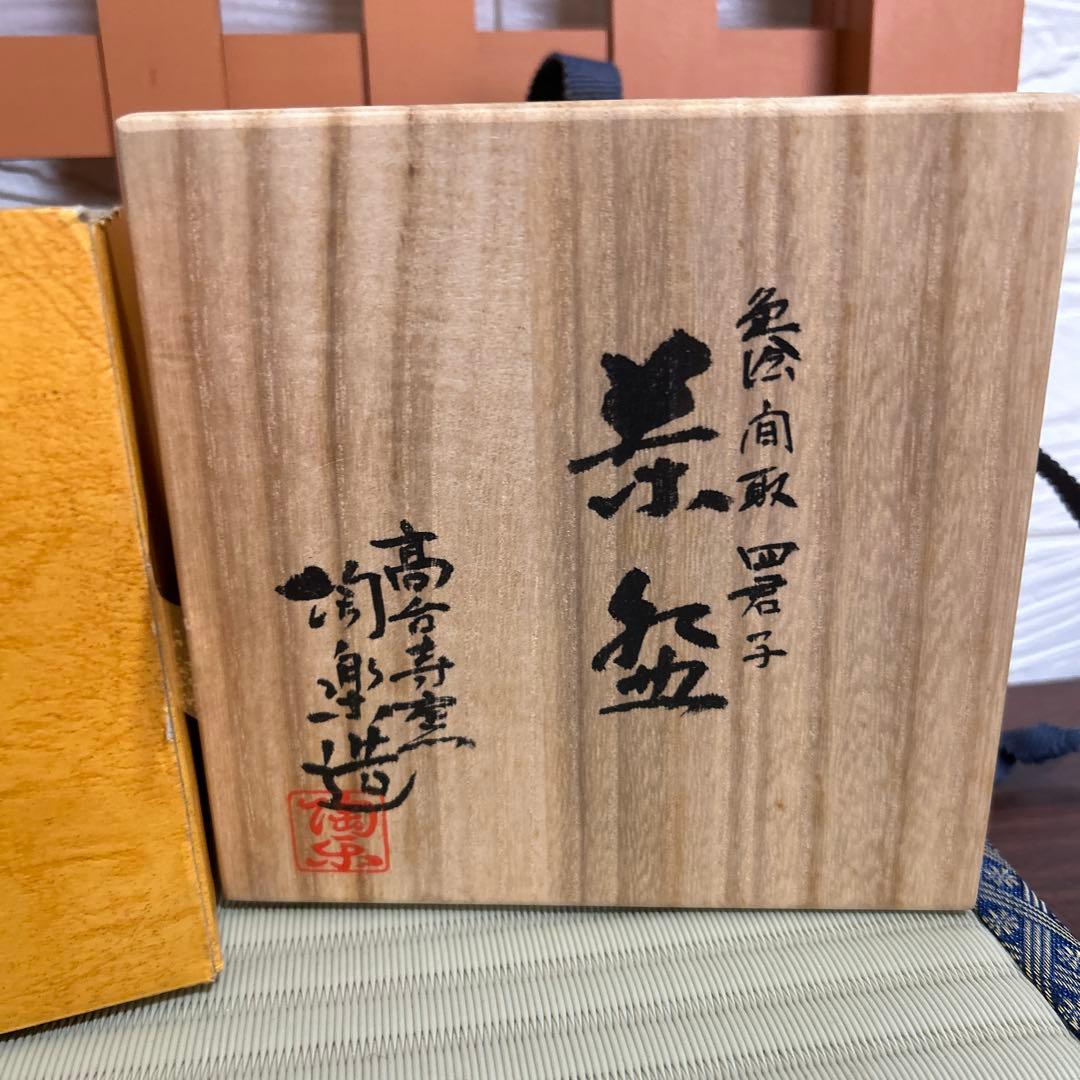 色絵間取 四君子
茶盌
高台寺窯
陶楽造
陶楽